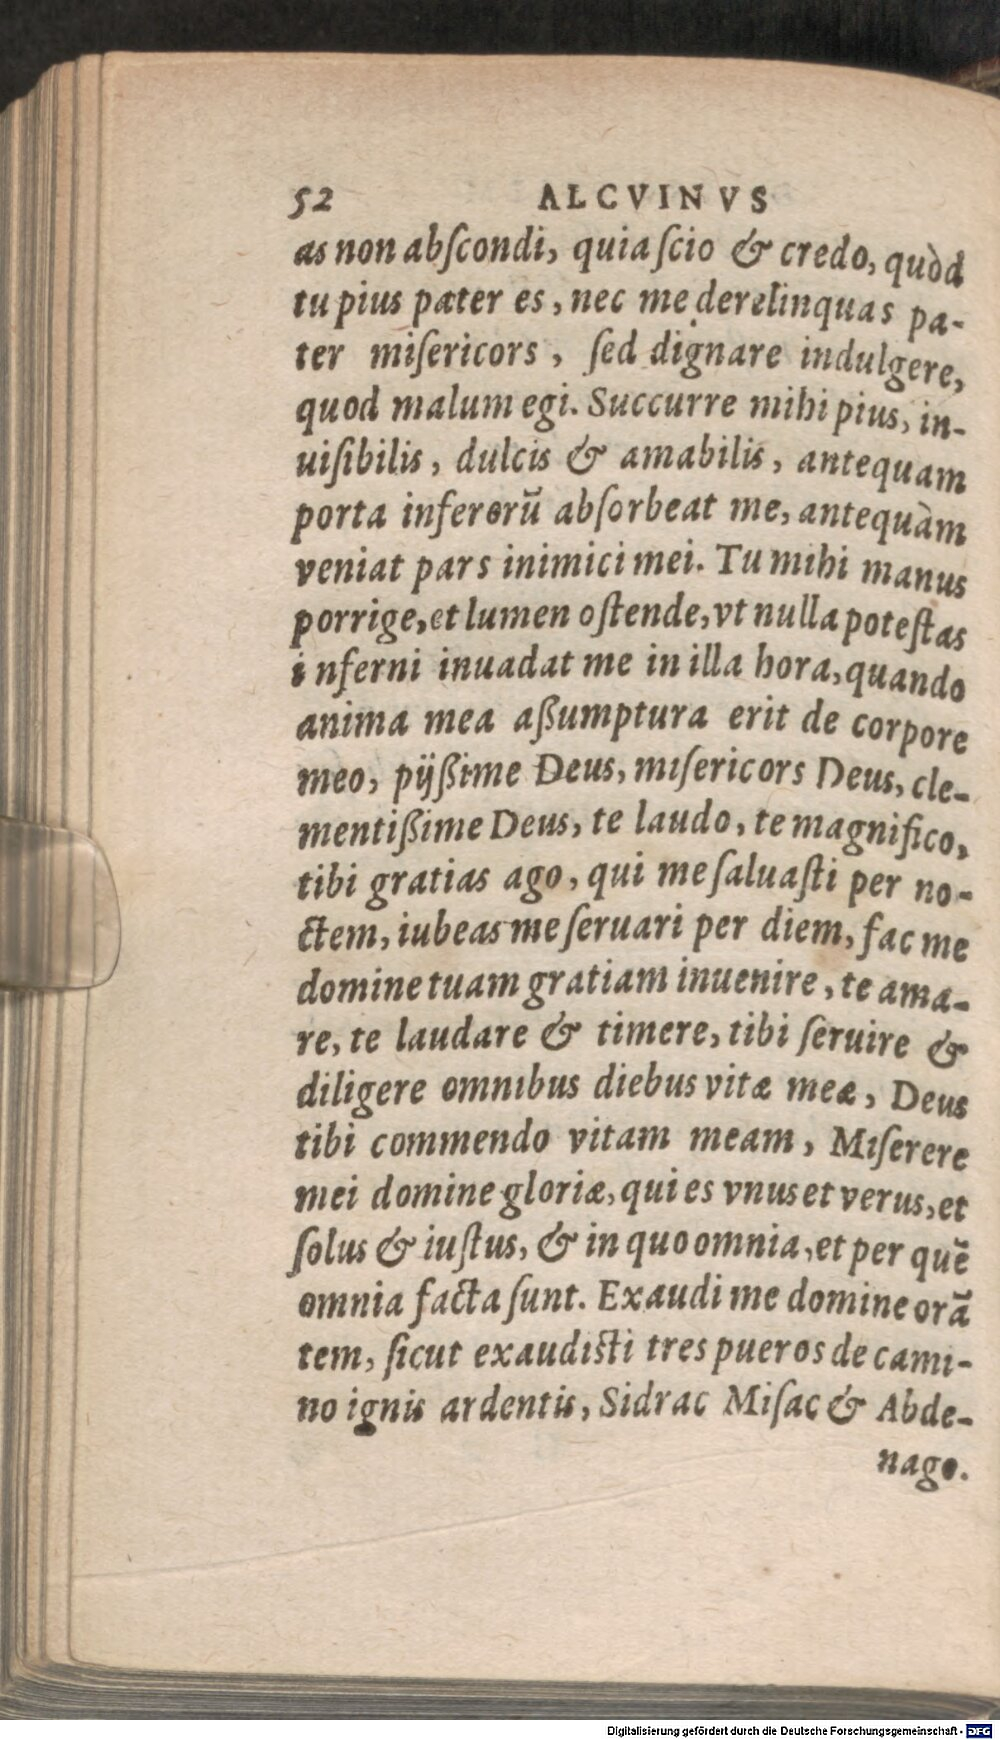 52 ALCVINVS
as non abſcondi, quia ſcio & credo, quòd
tu pius pater es, nec me derelinquas pa-
ter miſericors, ſed dignare indulgere,
quod malum egi. Succurre mihi pius, in-
uiſibilis, dulcis & amabilis, antequam
porta inferorū abſorbeat me, antequàm
veniat pars inimici mei. Tu mihi manus
porrige, et lumen oſtende, vt nulla poteſtas
inferni inuadat me in illa hora, quando
anima mea aßumptura erit de corpore
meo, pijßime Deus, miſericors Deus, cle-
mentißime Deus, te laudo, te magnifico,
tibi gratias ago, qui me ſaluaſti per no-
ctem, iubeas me ſeruari per diem, fac me
domine tuam gratiam inuenire, te ama-
re, te laudare & timere, tibi ſeruire &
diligere omnibus diebus vitæ meæ, Deus
tibi commendo vitam meam, Miſerere
mei domine gloriæ, qui es vnus et verus, et
ſolus & iuſtus, & in quo omnia, et per quē
omnia facta ſunt. Exaudi me domine orā
tem, ſicut exaudiſti tres pueros de cami-
no ignis ardentis, Sidrac Miſac & Abde-
nago.
Digitalisierung gefördert durch die Deutsche Forschungsgemeinschaft - DFG